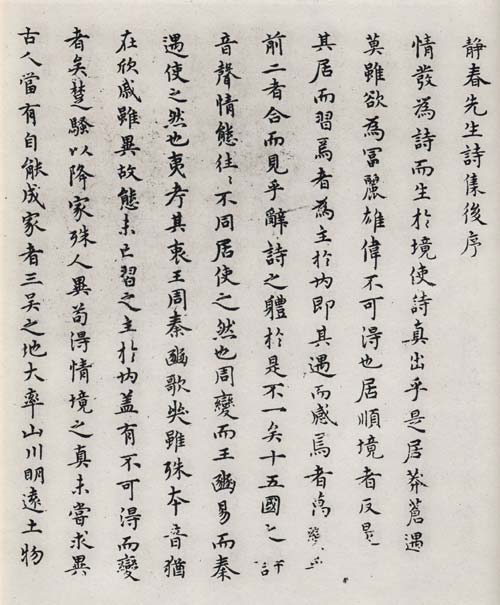 静春先生詩集後序
情發為詩而生於境使詩真出乎是居莽蒼遇
莫雖欲為冨麗雄偉不可得也居順境者反是
其居而習焉者為主於内即其遇而感焉者為
前二者合而見乎辭詩之軆於是不一矣十五國之
音聲情態往〻不同居使之然也周變而王豳易而秦
遇使之然也夷考其衷王周秦豳歌奘雖殊本音猶
在欣戚雖異故態未亡習之主於内盖有不可得而變
者矣楚騷以降家殊人異苟得情境之真未嘗求異
古人當有自能成家者三吴之地大率山川明遠土物